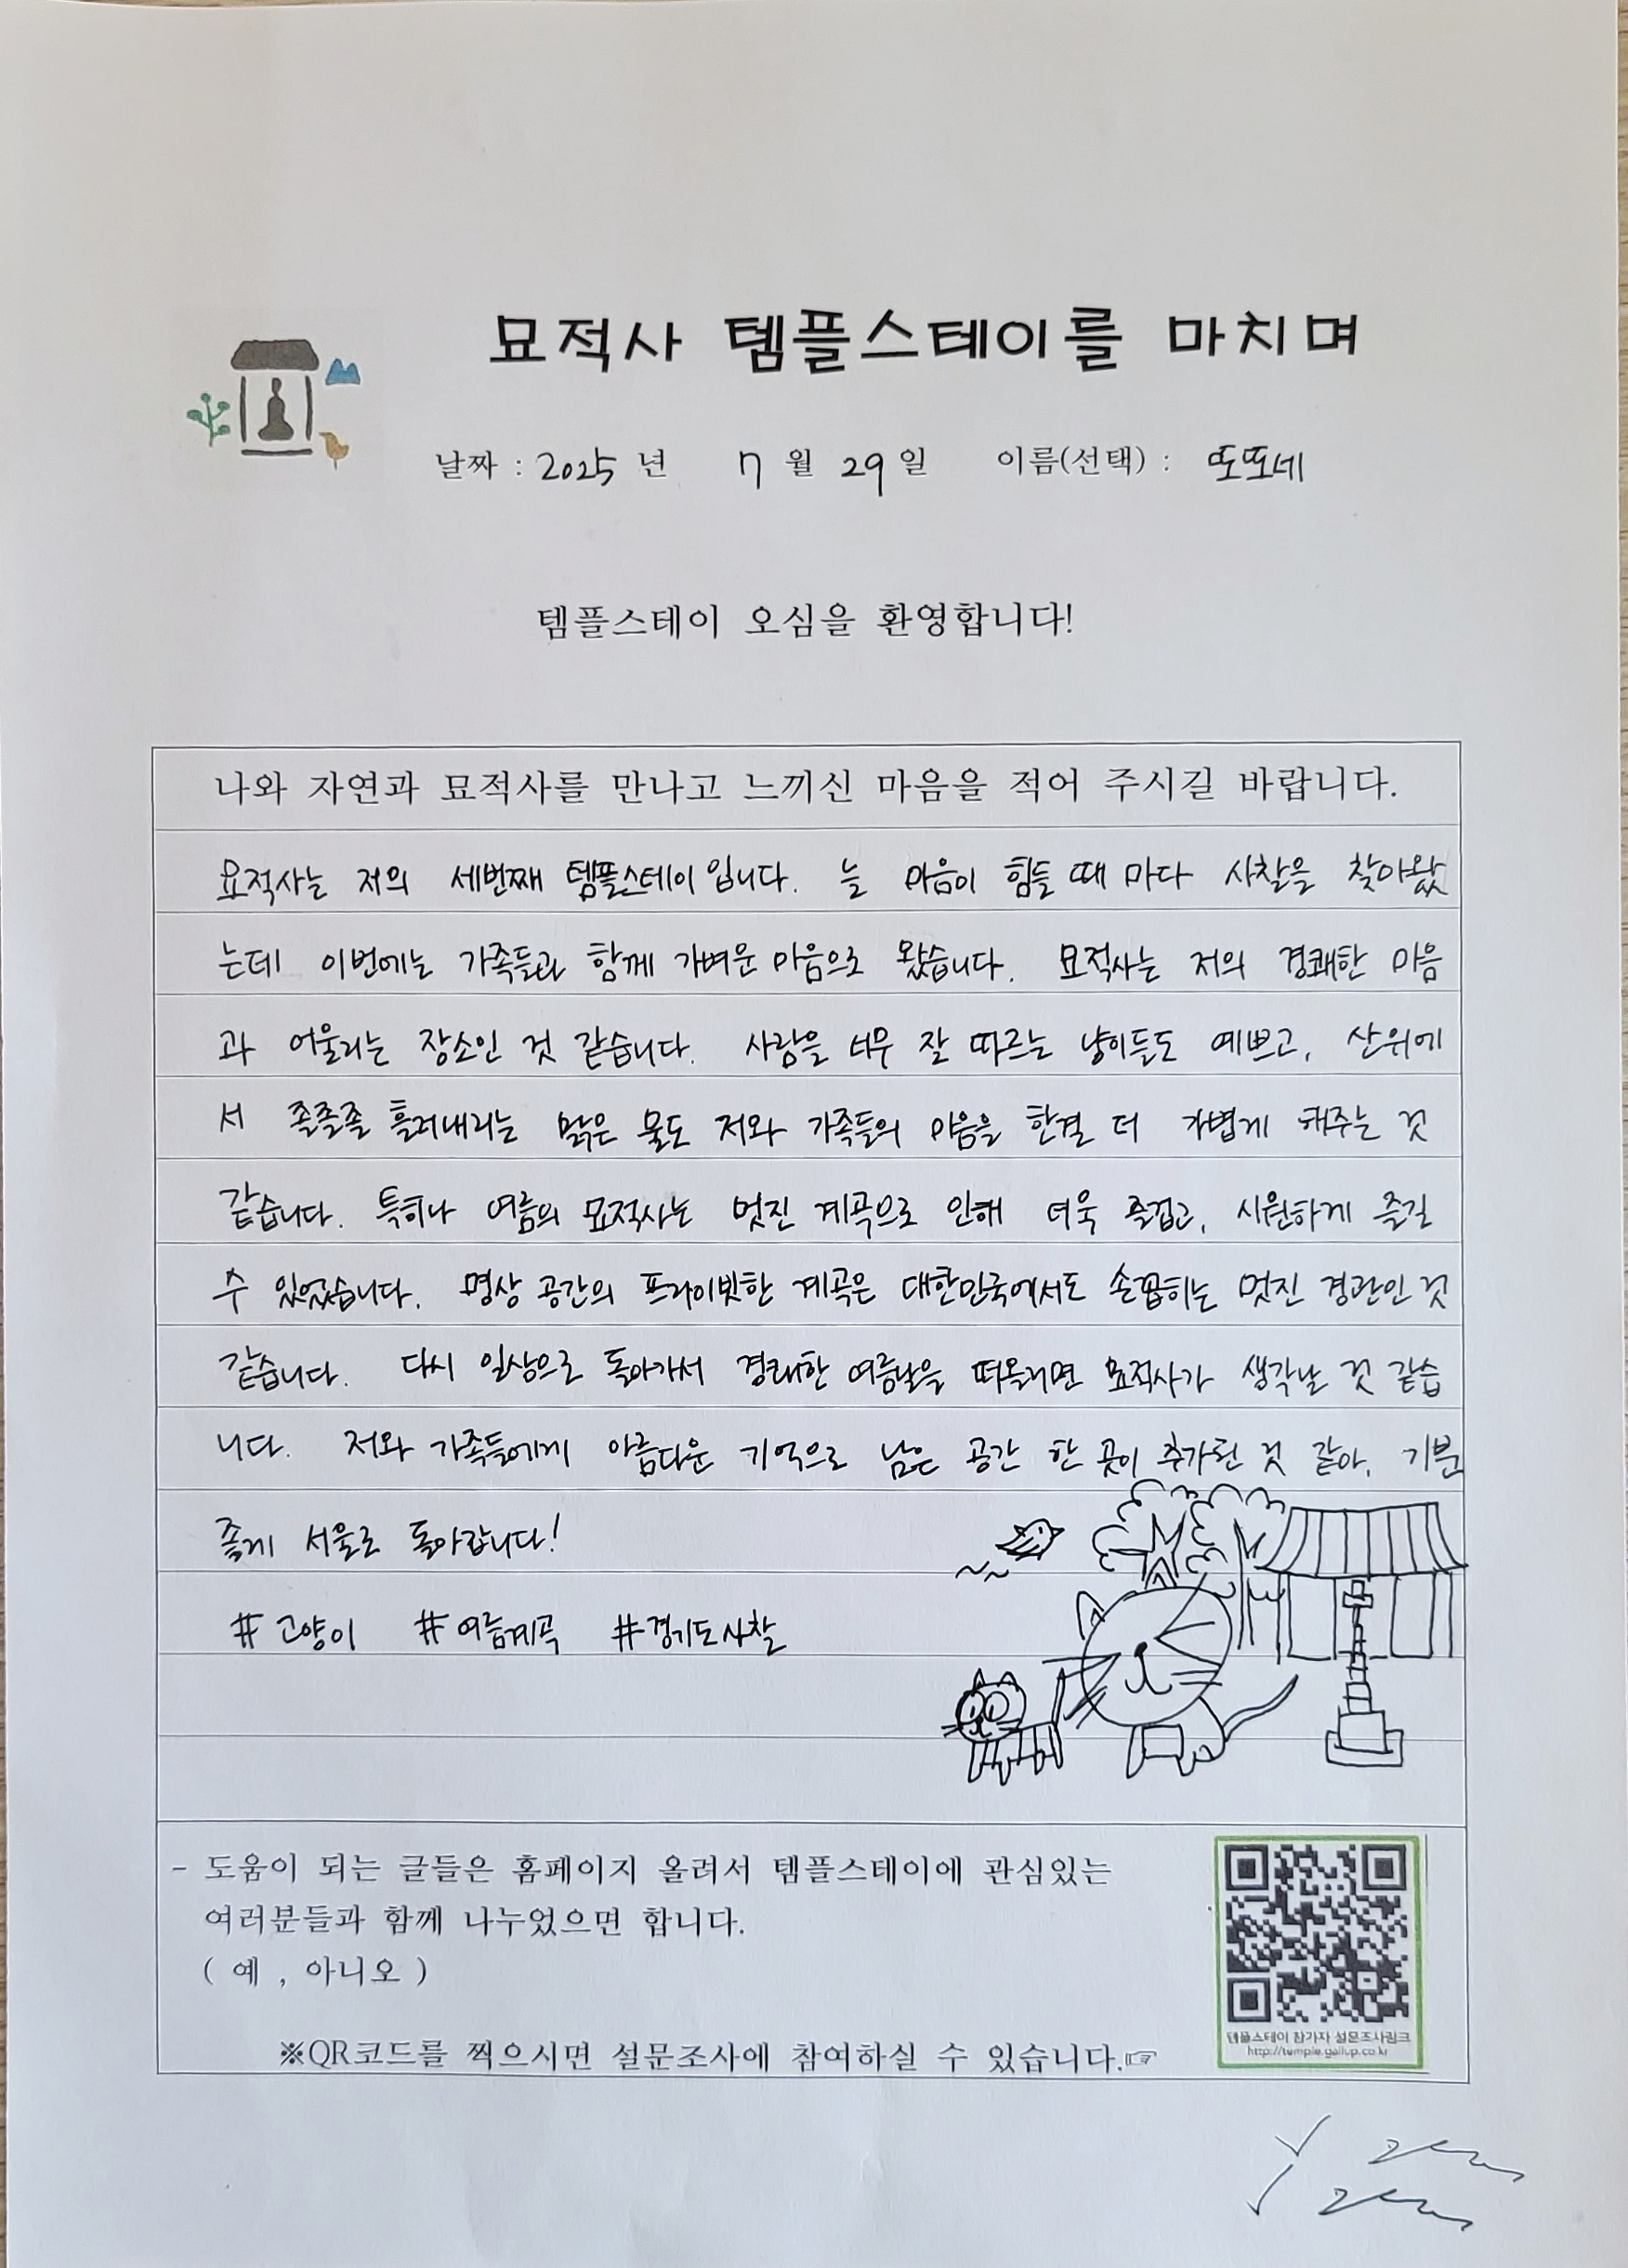 묘적사 템플스테이를 마치며
날짜 : 2025 년 7 월 29 일 이름(선택) : 또또네
템플스테이 오심을 환영합니다!
나와 자연과 묘적사를 만나고 느끼신 마음을 적어 주시길 바랍니다.
묘적사는 저의 세번째 템플스테이입니다. 늘 마음이 힘들 때 마다 사찰을 찾아왔
는데 이번에는 가족들과 함께 가벼운 마음으로 왔습니다. 묘적사는 저의 경쾌한 마음
과 어울리는 장소인 것 같습니다. 사람을 너무 잘 따르는 냥이들도 예쁘고, 산위에
서 졸졸졸 흘러내리는 맑은 물도 저와 가족들의 마음을 한결 더 가볍게 해주는 것
같습니다. 특히나 여름의 묘적사는 멋진 계곡으로 인해 더욱 즐겁고, 시원하게 즐길
수 있었습니다. 명상 공간의 프라이빗한 계곡은 대한민국에서도 손꼽히는 멋진 경관인 것
같습니다. 다시 일상으로 돌아가서 경쾌한 여름날을 떠올리면 묘적사가 생각날 것 같습
니다. 저와 가족들에게 아름다운 기억으로 남은 공간 한 곳이 추가된 것 같아, 기분
좋게 서울로 돌아갑니다!
# 고양이 # 여름계곡 # 경기도사찰
- 도움이 되는 글들은 홈페이지 올려서 템플스테이에 관심있는
여러분들과 함께 나누었으면 합니다.
( 예 , 아니오 )
※QR코드를 찍으시면 설문조사에 참여하실 수 있습니다.☞
템플스테이 참가자 설문조사링크
http://temple.gallup.co.kr